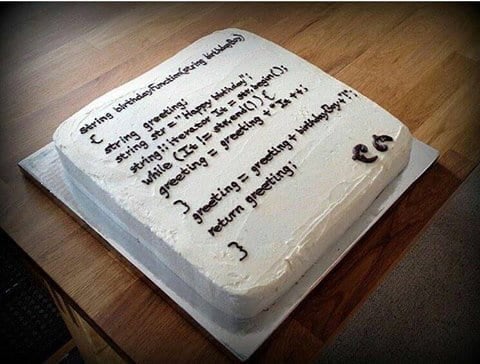 string birthdayFunction(string birthdayBoy)
{ string greeting;
string str = "Happy birthday";
string::iterator It = str.begin();
while (It != str.end()) {
greeting = greeting + *It++;
}
greeting = greeting + birthdayBoy + "!";
return greeting;
}